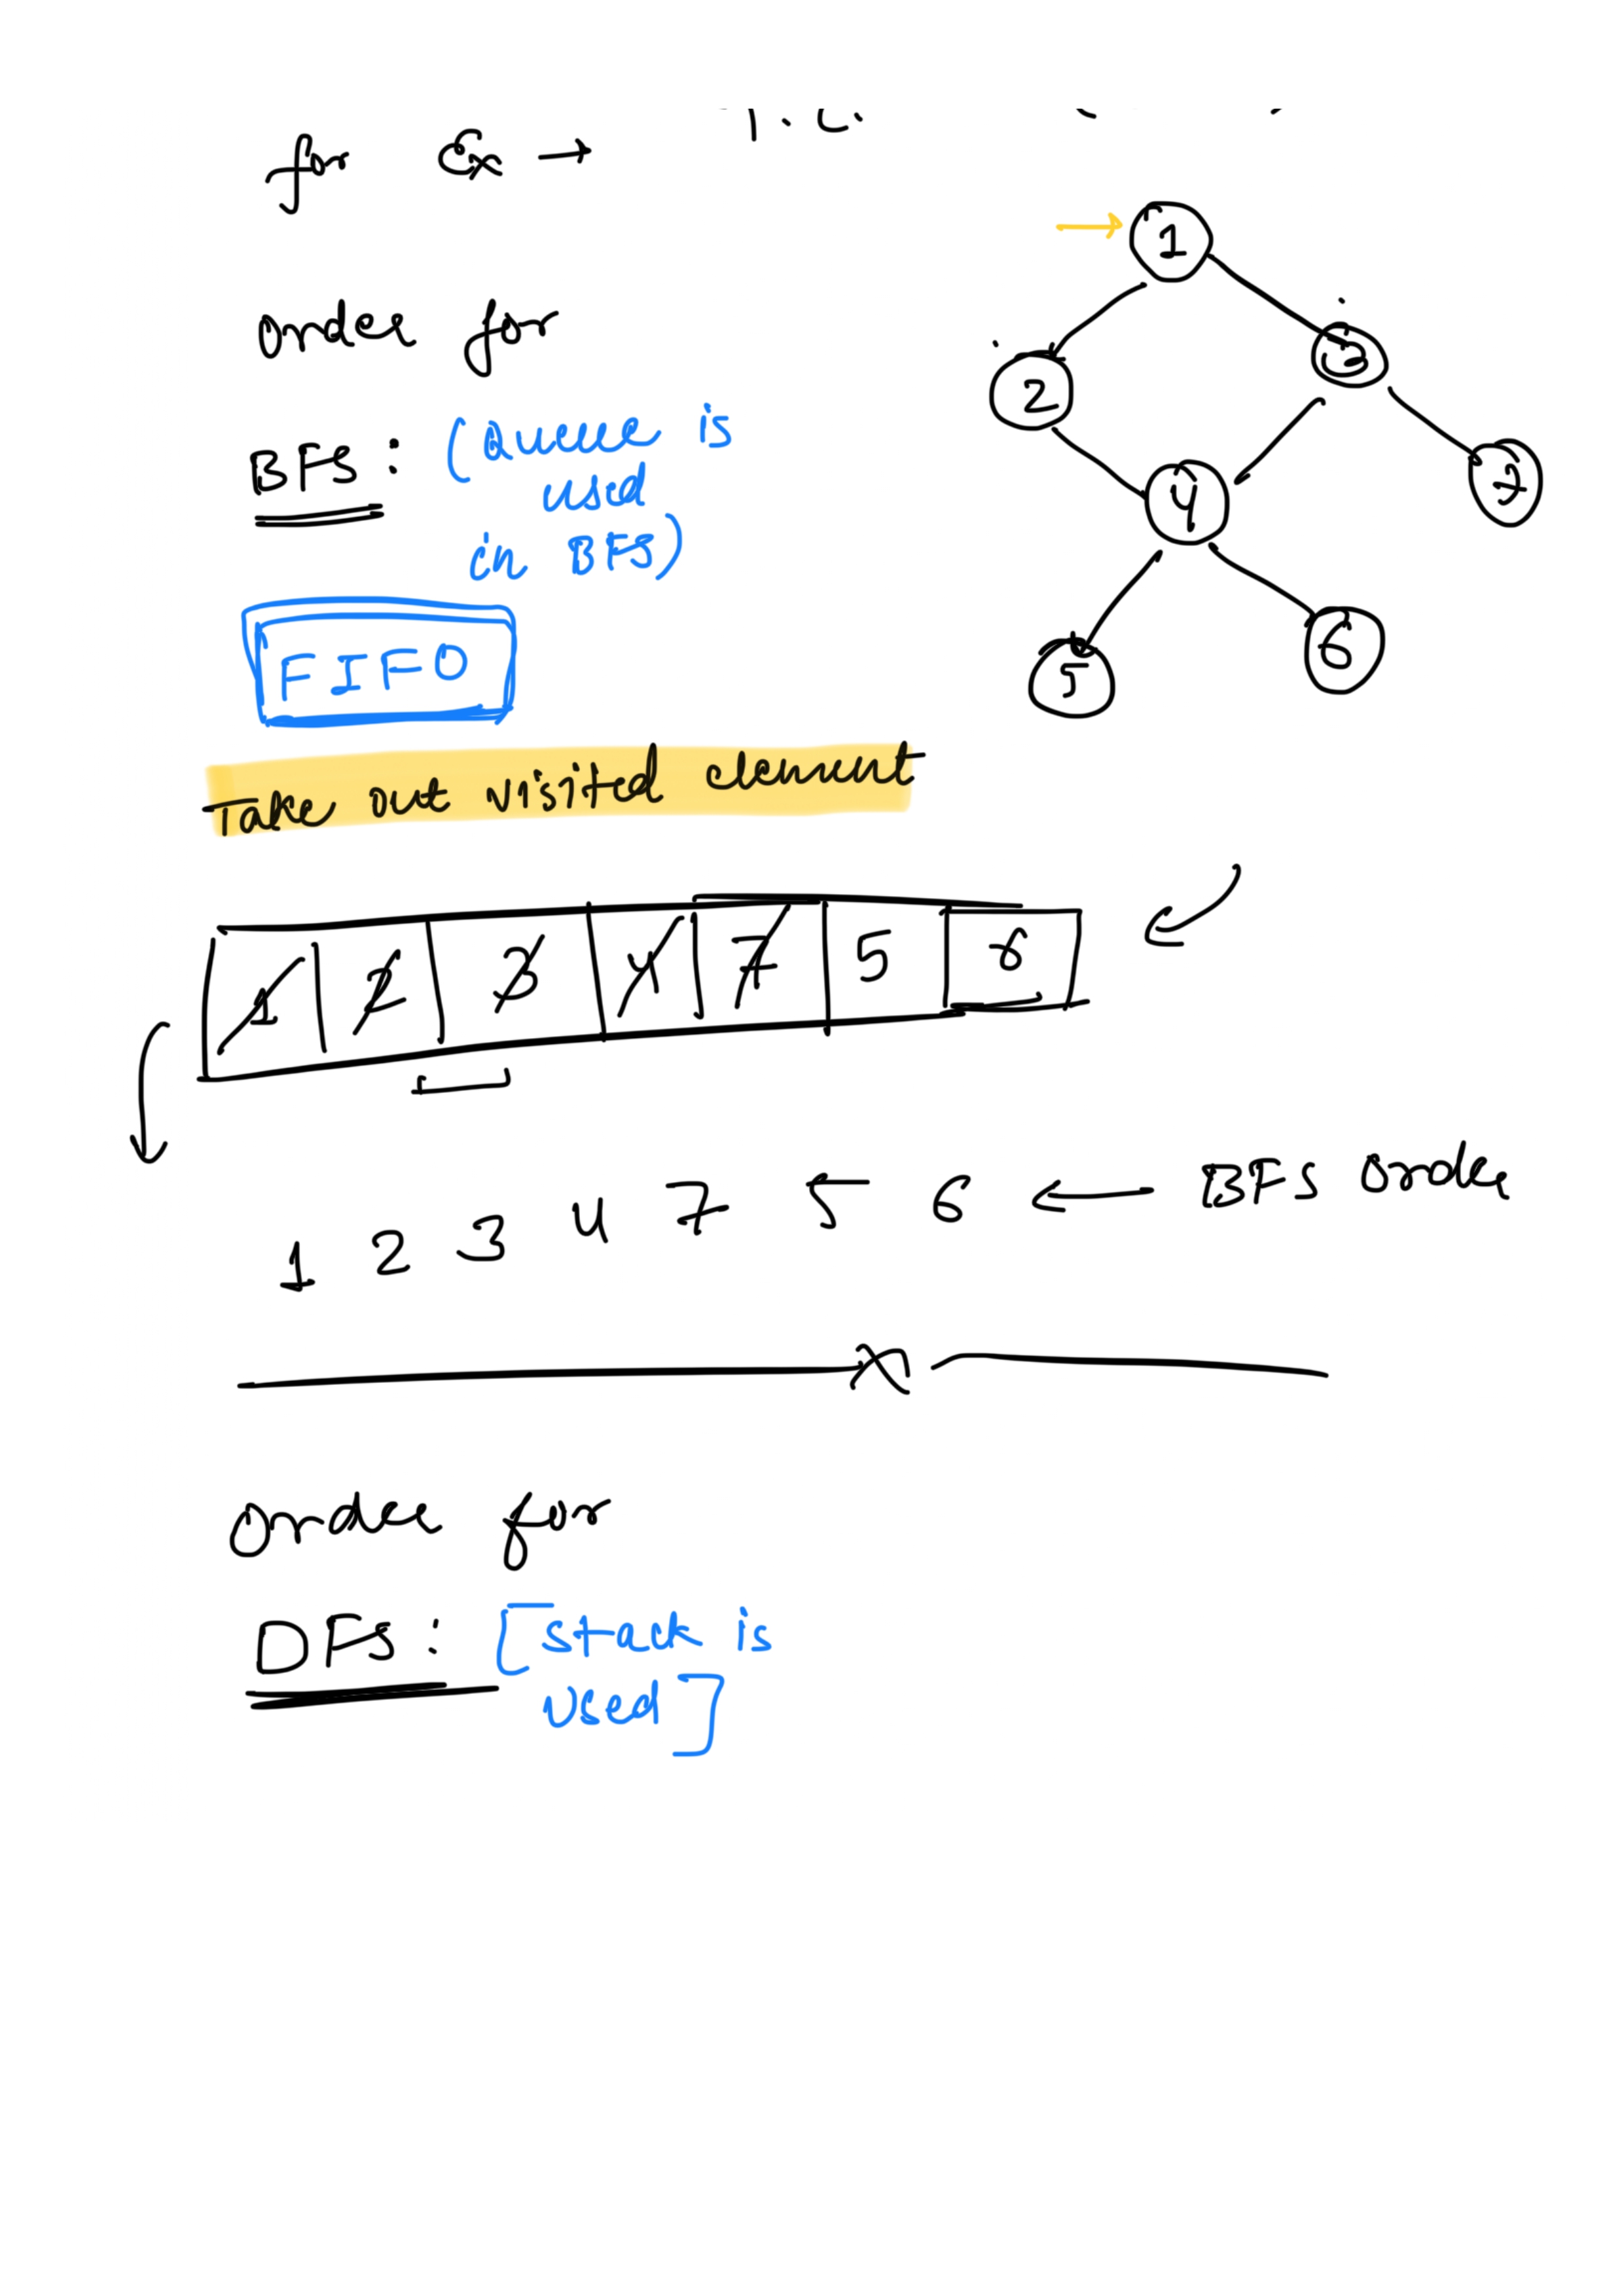 for Ex →
1
order for
3
2
BFS : (Queue is
used
4
7
in BFS)
5
6
FIFO
Take out visited element
1 2 3 4 7 5 6
1 2 3 4 7 5 6 ← BFS order
x
order for
DFS : [stack is
used]